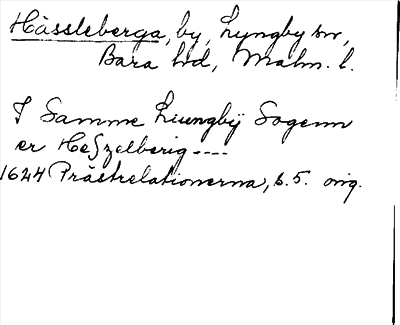 Hässleberga, by, Lyngby sn,
Bara hd, Malm. l.
I Samme Liungbÿ Sogenn
er Heszelberig ----
1624 Prästrelationerna, s. 5. orig.